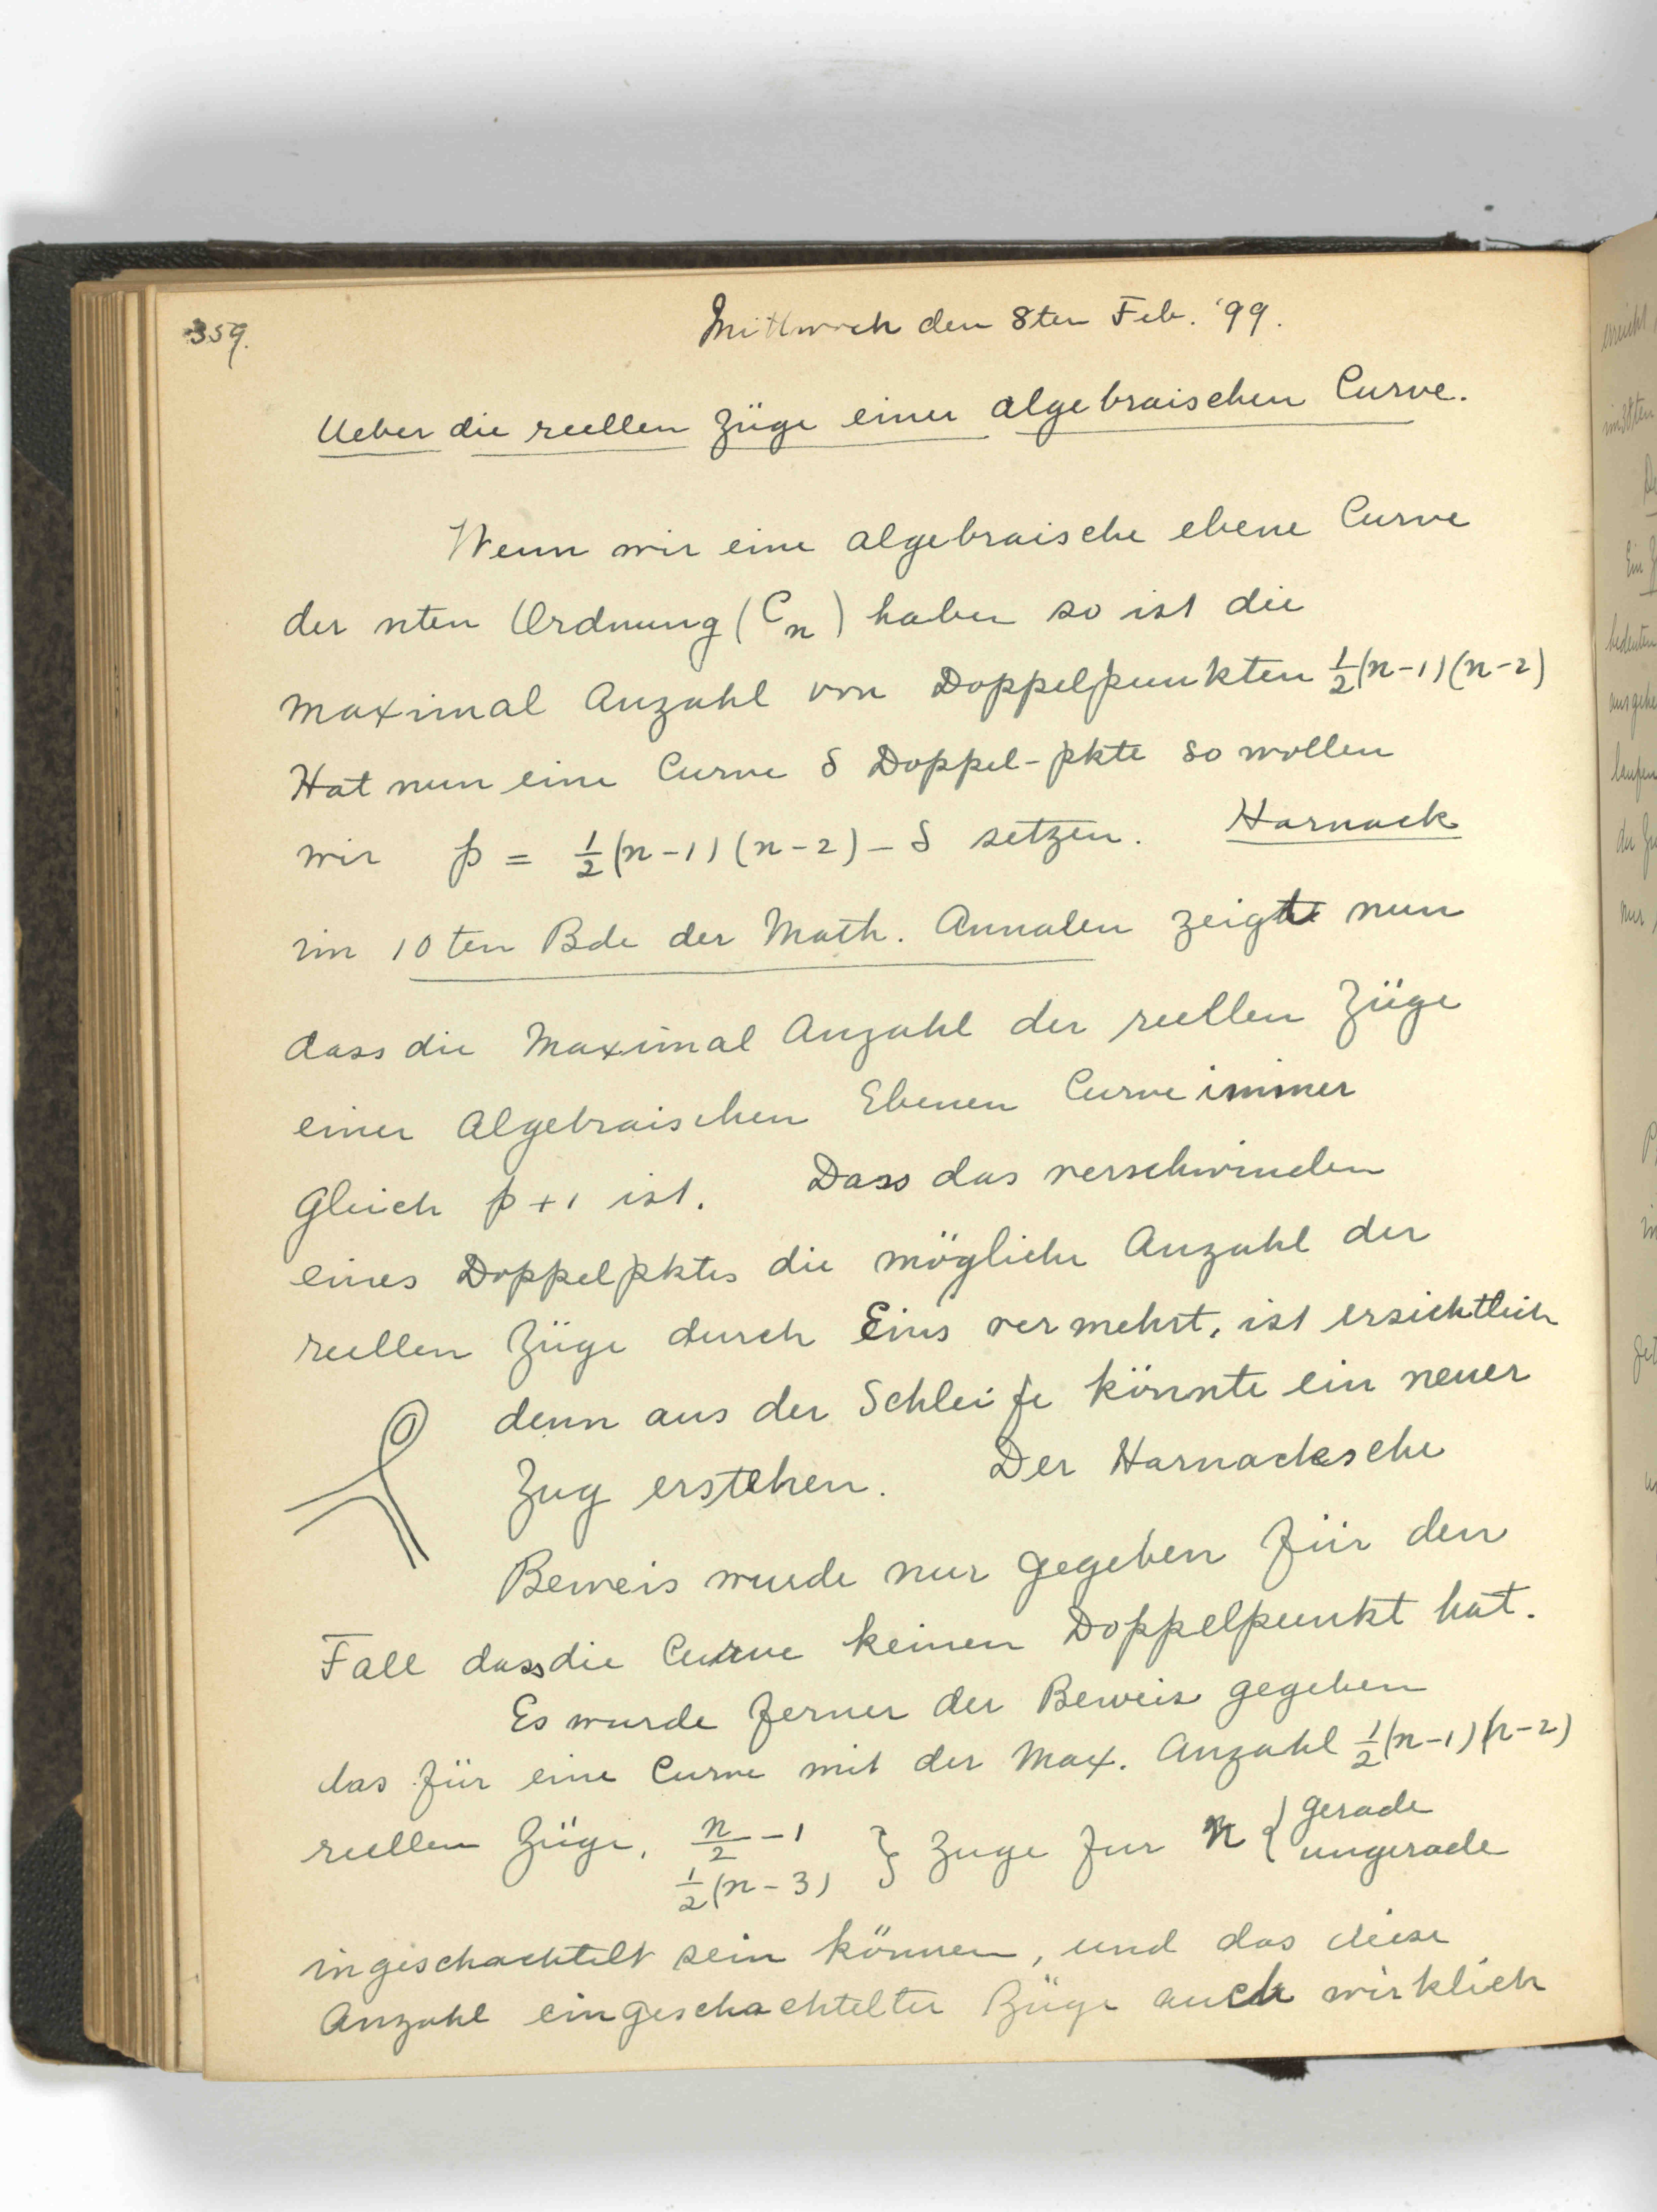 359.
Mittwoch den 8ten Feb. '99.
Ueber die reellen Züge einer algebraischen Curve.
Wenn wir eine algebraische ebene Curve
der nten Ordnung (C_n) haben so ist die
maximal Anzahl von Doppelpunkten ½(n-1)(n-2)
Hat nun eine Curve δ Doppel-pkte so wollen
wir p = ½(n-1)(n-2) - δ setzen. Harnack
im 10ten Bde der Math. Annalen zeigte nun
dass die Maximal Anzahl der reellen Züge
einer Algebraischen Ebenen Curve immer
gleich p+1 ist. Dass das verschwinden
eines Doppelpktes die mögliche Anzahl der
reellen Züge durch Eins vermehrt, ist ersichtlich
denn aus der Schleife könnte ein neuer
Zug erstehen. Der Harnacksche
Beweis wurde nur gegeben für den
Fall dass die Curve keinen Doppelpunkt hat.
Es wurde ferner der Beweis gegeben
das für eine Curve mit der Max. Anzahl ½(n-1)(n-2)
reellen Züge, n/2 - 1 } Zuge fur n { gerade
½(n-3) ungerade
ingeschachtelt sein können, und das diese
Anzahl eingeschachtelter Züge auch wirklich